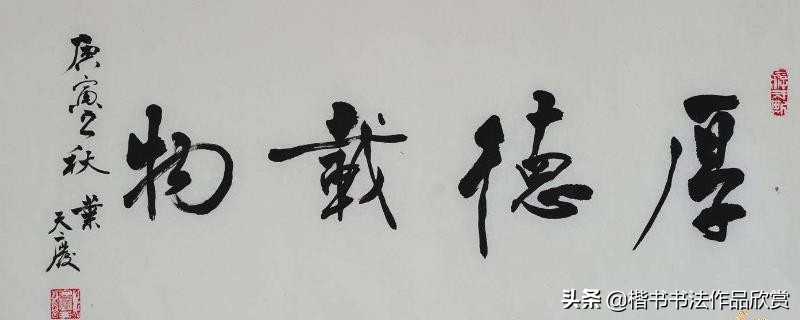 厚德載物
庚寅之秋
葉天慶
头条 @楷书书法作品欣赏